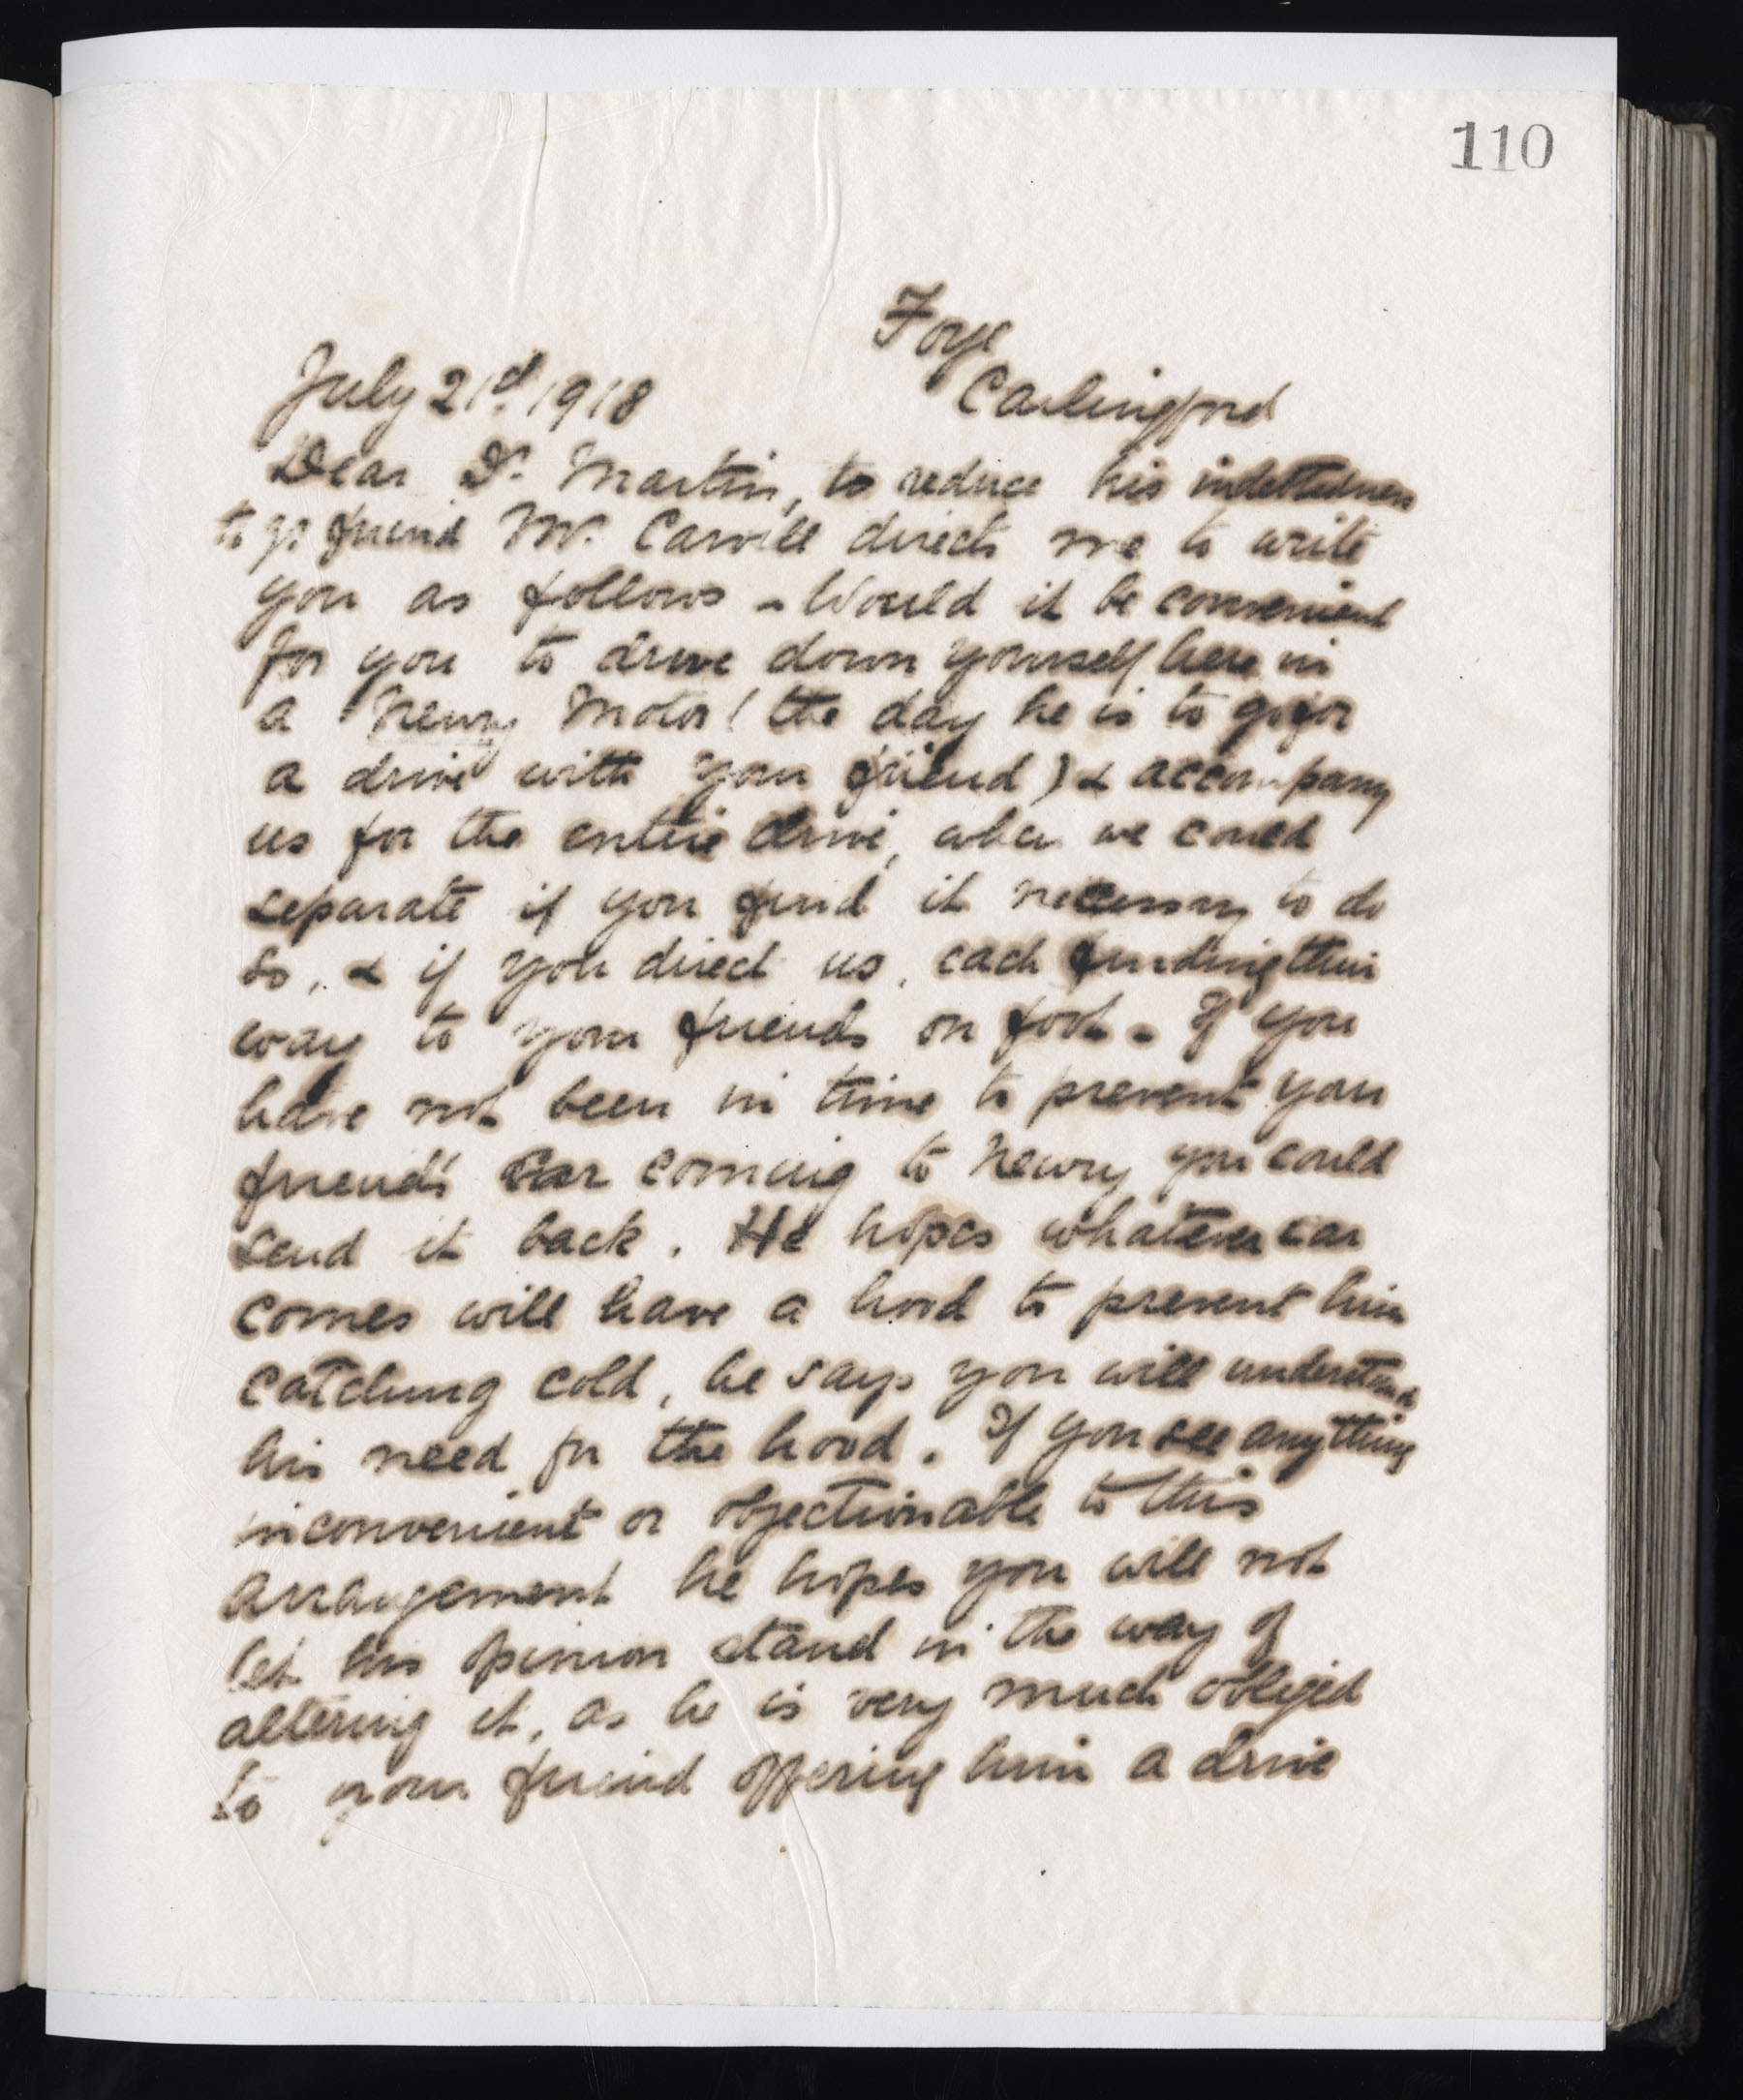 110
Foye
July 21d. 1918 Carlingford
Dear Dr. Martin, to reduce his indebtedness
to yr friend Mr. Carvill directs me to write
you as follows - Would it be convenient
for you to drive down yourself here in
a Newry Motor (the day he is to go for
a drive with your friend) & accompany
us for the entire drive, when we could
separate if you find it necessary to do
so, & if you direct us, each finding their
way to your friends on foot - If you
have not been in time to prevent your
friend's car coming to Newry you could
send it back. He hopes whatever car
comes will have a hood to prevent him
catching cold, he says you will understand
his need for the hood. If you see anything
inconvenient or objectionable to this
arrangement he hopes you will not
let his opinion stand in the way of
altering it, as he is very much obliged
to your friend offering him a drive